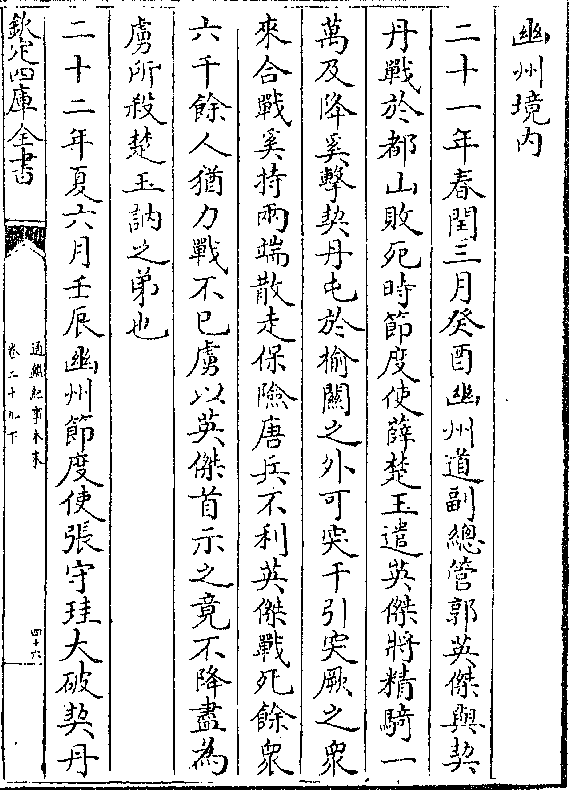 幽州境内
二十一年春閏三月癸酉幽州道副總管郭英傑與契
丹戰於都山敗死時節度使薛楚玉遣英傑將精騎一
萬及降奚擊契丹屯於榆關之外可突干引突厥之衆
來合戰奚持兩端散走保險唐兵不利英傑戰死餘衆
六千餘人猶力戰不已虜以英傑首示之竟不降盡為
虜所殺楚玉訥之弟也
二十二年夏六月壬辰幽州節度使張守珪大破契丹
欽定四庫全書
通鑑紀事本末
卷二十九下
四十六